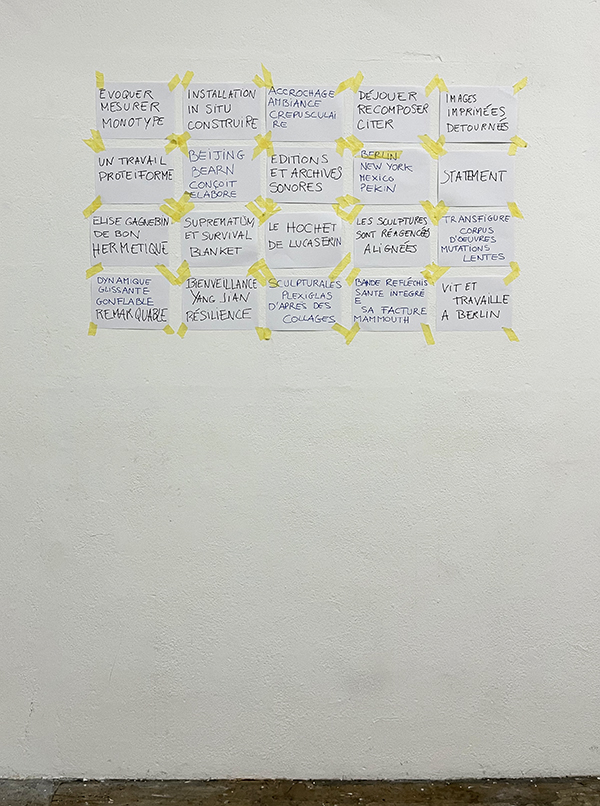 EVOQUER
MESURER
MONOTYPE
INSTALLATION
IN SITU
CONSTRUIRE
ACCROCHAGE
AMBIANCE
CREPUSCULAI
RE
DÉJOUER
RECOMPOSER
CITER
IMAGES
IMPRIMÉES
DETOURNÉES
UN TRAVAIL
PROTEIFORME
BEIJING
BEARN
CONÇOIT
ELABORE
EDITIONS
ET ARCHIVES
SONORES
BERLIN
NEW YORK
MEXICO
PEKIN
STATEMENT
ELISE GAGNEBIN-
DE BON
HERMETIQUE
SUPREMATUM
ET SURVIVAL
BLANKET
LE HOCHET
DE LUCAS ERIN
LES SCULPTURES
SONT RÉAGENCÉES
ALIGNÉES
TRANSFIGURE
CORPUS
D'OEUVRES
MUTATIONS
LENTES
DYNAMIQUE
GLISSANTE
GONFLABLE
REMARQUABLE
BIENVEILLANCE
YANG JIAN
RÉSILIENCE
SCULPTURALES
PLEXIGLAS
D'APRÈS DES
COLLAGES
BANDE REFLÉCHIS
SANTE INTEGRÉ
E
SA FACTURE
MAMMOUTH
VIT ET
TRAVAILLE
A BERLIN